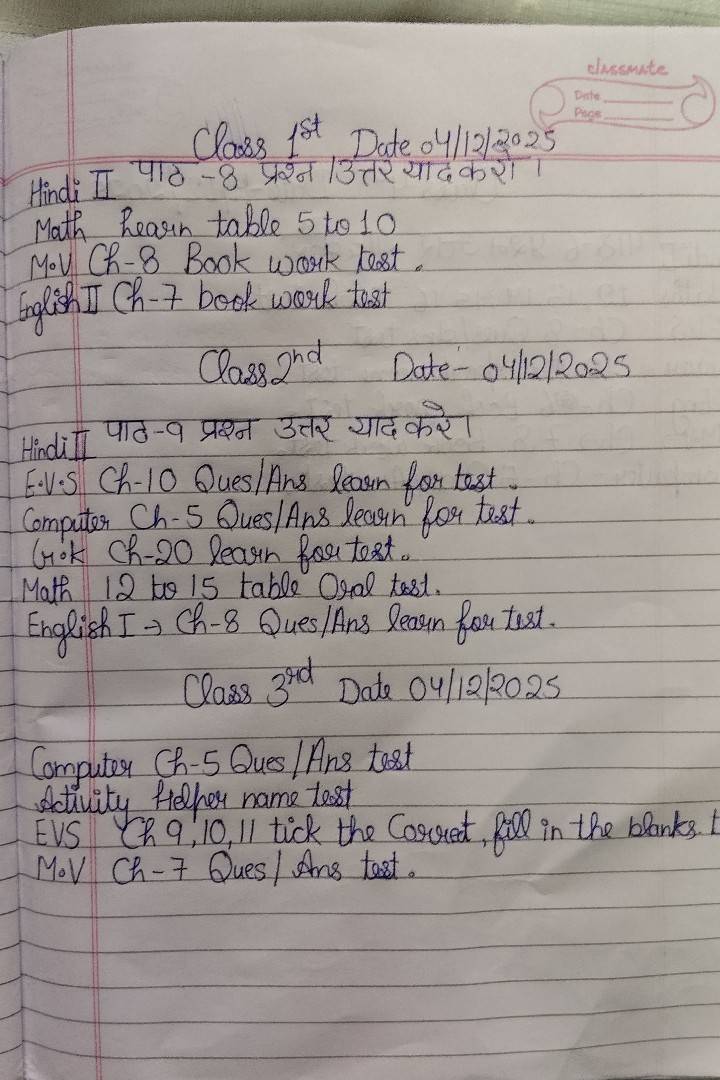 classmate
Date
Page
Class 1st Date 04/12/2025
Hindi II पाठ -8 प्रश्न /उत्तर याद करो ।
Math Learn table 5 to 10
M.V Ch-8 Book work test.
English II Ch-7 book work test
Class 2nd Date- 04/12/2025
Hindi II पाठ-9 प्रश्न उत्तर याद करे।
E.V.S Ch-10 Ques/Ans learn for test.
Computer Ch-5 Ques/Ans learn for test.
G.K Ch-20 learn for test.
Math 12 to 15 table Oral test.
English I → Ch-8 Ques/Ans learn for test.
Class 3rd Date 04/12/2025
Computer Ch-5 Ques/Ans test
Activity Helper name test
EVS Ch 9,10,11 tick the Correct, fill in the blanks.
M.V Ch-7 Ques/Ans test.